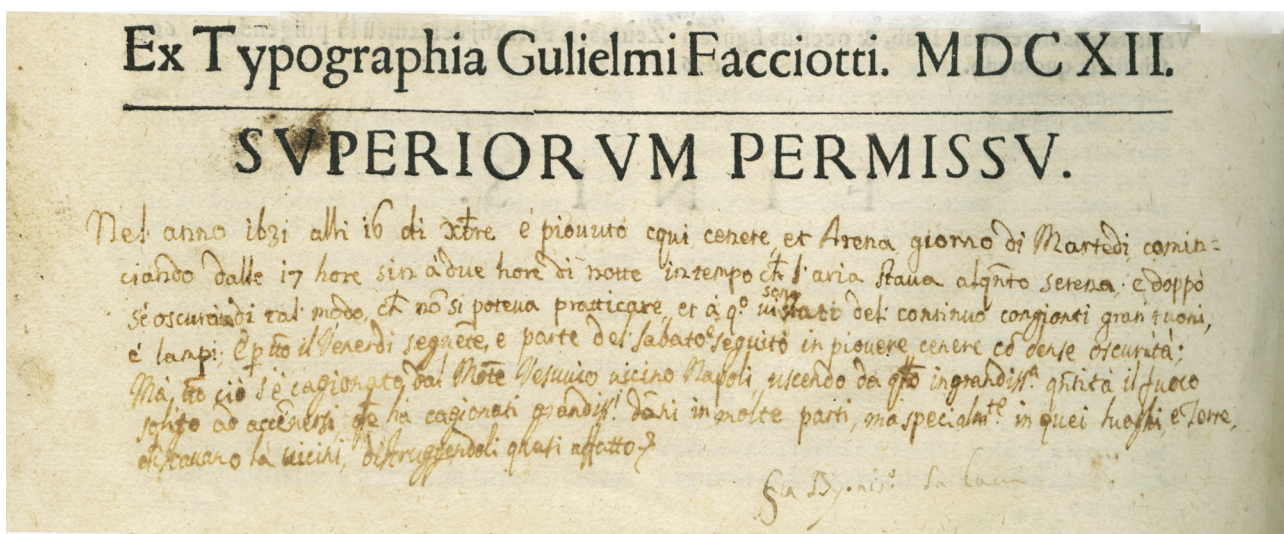 Ex Typographia Gulielmi Facciotti. MDCXII.
SVPERIORVM PERMISSV.
Nel anno 1631 alli 16 di xbre è piouuto cqui cenere, et Arena giorno di Martedi comin=
ciando dalle 17 hore sin à due hore di notte in tempo ch l'aria staua alqnto serena, e doppò
s'è oscurata di tal modo, ch nõ si poteua pratticare, et à qo ui sono stati del continuo congionti gran tuoni,
è lampi; il Venerdi segnete, e parte del sabato seguitò in piouere cenere cõ dense oscurità;
Mà ciò s'è cagionato dal Mõte Vesuuio uicino Napoli, uscendo da in grandissa qntità il fuoco
solito ad accẽdersi ha cagionati grandissi dãni in molte parti, ma specialmte in quei luoghi, e Terre,
ch stauano là uicini, distruggendoli quasi affatto